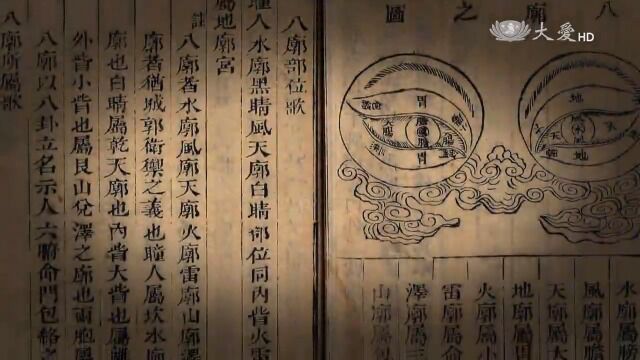 大愛HD
八廓之圖
天
地
地
胃
水廓屬
風廓屬
天廓屬
地廓屬
火廓屬
雷廓屬
澤廓屬三
山廓屬
八廓部位歌
瞳人水廓黑睛風天廓白睛部位同內眥火雷
屬地廓宮
註
八廓者水廓風廓天廓火廓雷廓山廓澤
廓者猶城郭衛禦之義也瞳人屬坎水廓
廓也白睛屬乾天廓也內眥大眥也屬離
外眥小眥也屬艮山兌澤之廓也兩胞屬
八廓以八卦立名示人六腑命門包絡之
八廓所屬歌